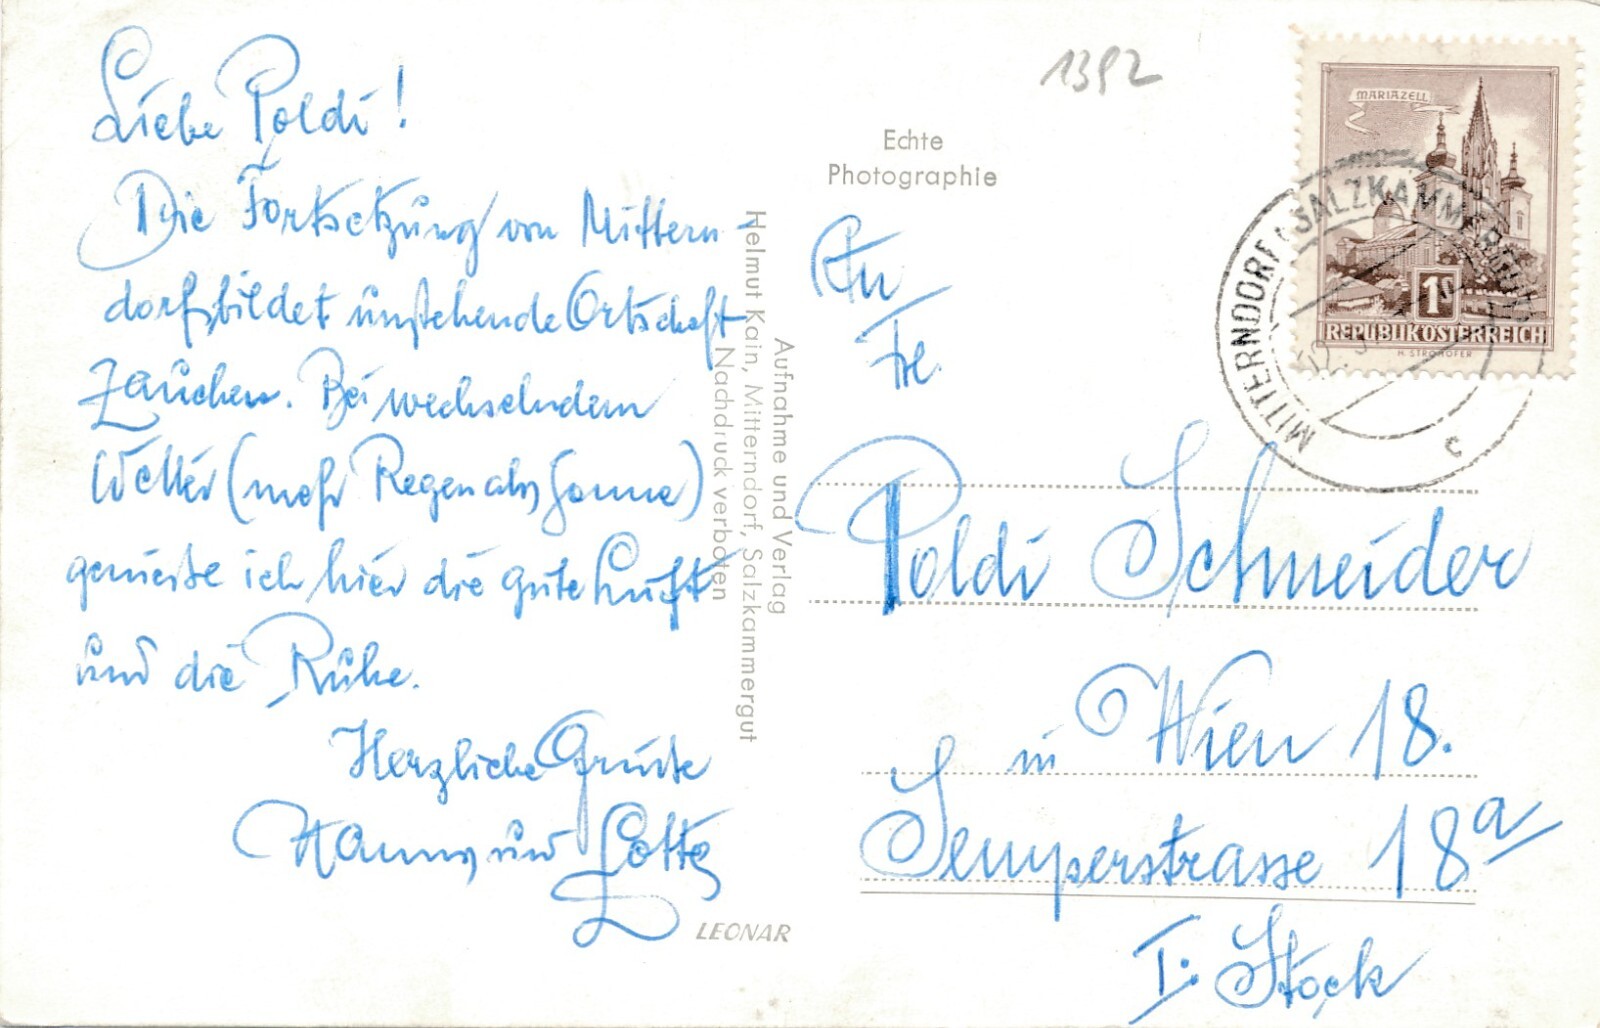 Liebe Poldi!
Die Fortsetzung von Mittern-
dorf, bildet umstehende Ortschaft
Zauchen. Bei wechselndem
Wetter (mehr Regen als Sonne)
genieße ich hier die gute Luft
und die Ruhe.
Herzliche Grüße
Hanns und Lotte
1392
Echte
Photographie
Aufnahme und Verlag
Helmut Kain, Mitterndorf, Salzkammergut
Nachdruck verboten
LEONAR
MARIAZELL
1S
REPUBLIK ÖSTERREICH
H. STROHOFER
MITTERNDORF, SALZKAMMERGUT
c
An
Frl.
Poldi Schneider
in Wien 18.
Semperstrasse 18a
I. Stock